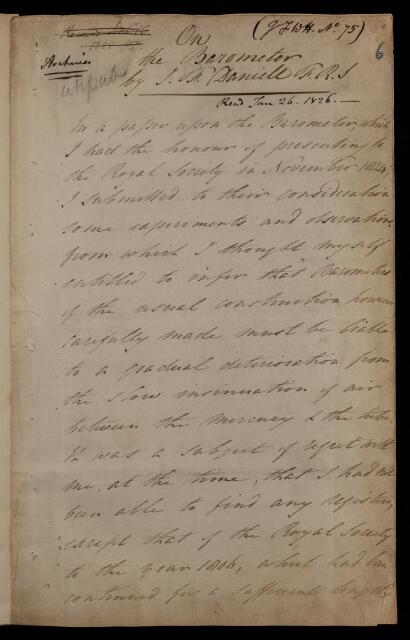 (JFWH. No. 75)
6
Archives
On
the Barometer
by J. F. Daniell F.R.S
Read Jan 26. 1826.
In a paper upon the Barometer, which
I had the honour of presenting to
the Royal Society in November 1824,
I submitted to their consideration
some experiments and observations
from which I thought myself
entitled to infer that Barometers
of the usual construction however
carefully made must be liable
to a gradual deterioration from
the slow insinuation of air
between the mercury & the tube.
It was a subject of regret with
me, at the time, that I had not
been able to find any registers,
except that of the Royal Society
to the year 1806, which had been
continued for a sufficient length